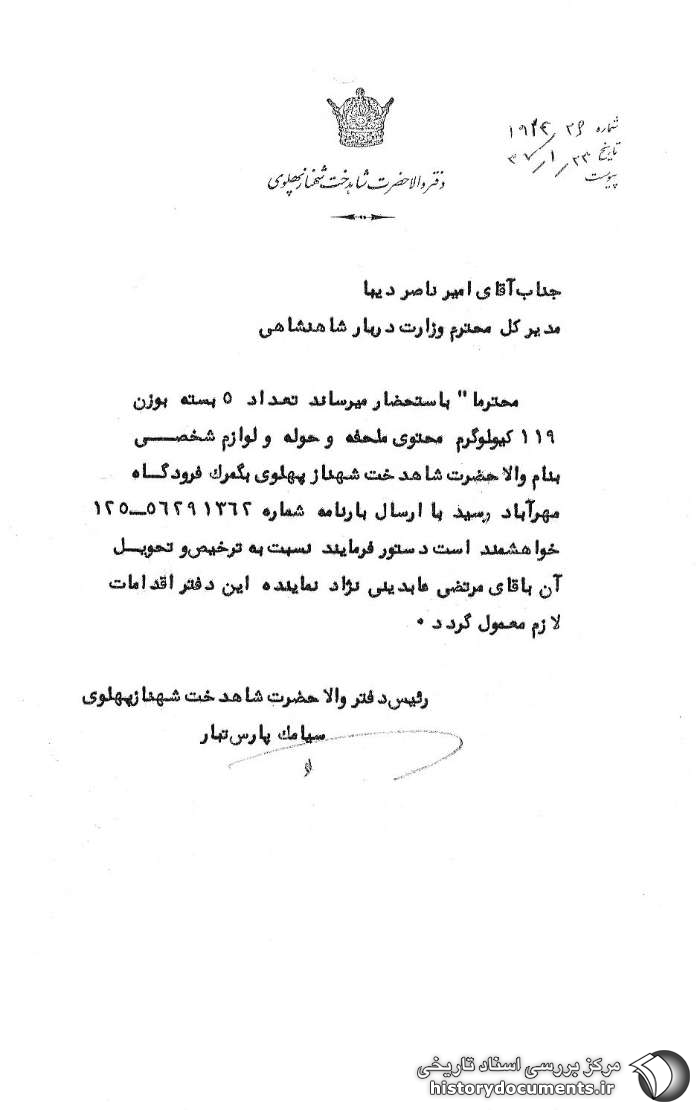 شماره ۱۹۴۴/۲۶
تاریخ ۳۷/۱/۲۳
پیوست
دفتر والاحضرت شاهدخت شهناز پهلوی
جناب آقای امیر ناصر دیبا
مدیر کل محترم وزارت دربار شاهنشاهی
محترما" باستحضار میرساند تعداد ۵ بسته بوزن
۱۱۹ کیلوگرم محتوی ملحفه و حوله و لوازم شخصی
بنام والاحضرت شاهدخت شهناز پهلوی بگمرك فرودگاه
مهرآباد رسید با ارسال بارنامه شماره ۱۲۵-۵۶۲۹۱۳۶۲
خواهشمند است دستور فرمایند نسبت به ترخیص و تحویل
آن باقای مرتضی عابدینی نژاد نماینده این دفتر اقدامات
لازم معمول گردد ۰
رئیس دفتر والاحضرت شاهدخت شهناز پهلوی
سیامك پارس تبار
مرکز بررسی اسناد تاریخی
historydocuments.ir